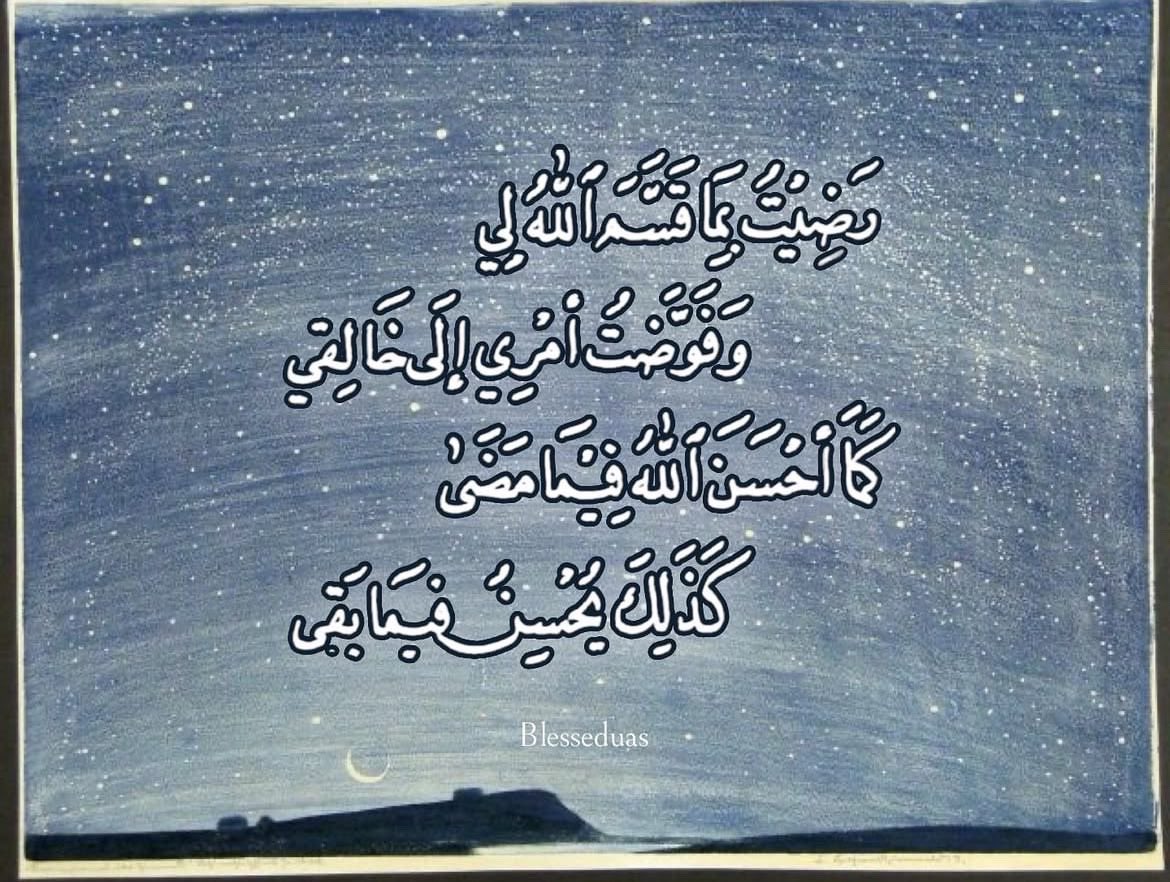 رَضِيْتُ بِمَا قَسَّمَ ٱللّٰهُ لِي
وَفَوَّضْتُ أَمْرِي إِلَى خَالِقِي
كَمَا أَحْسَنَ ٱللّٰهُ فِيْمَا مَضَىٰ
كَذَلِكَ يُحْسِنُ فِيمَا بَقَى
Blesseduas